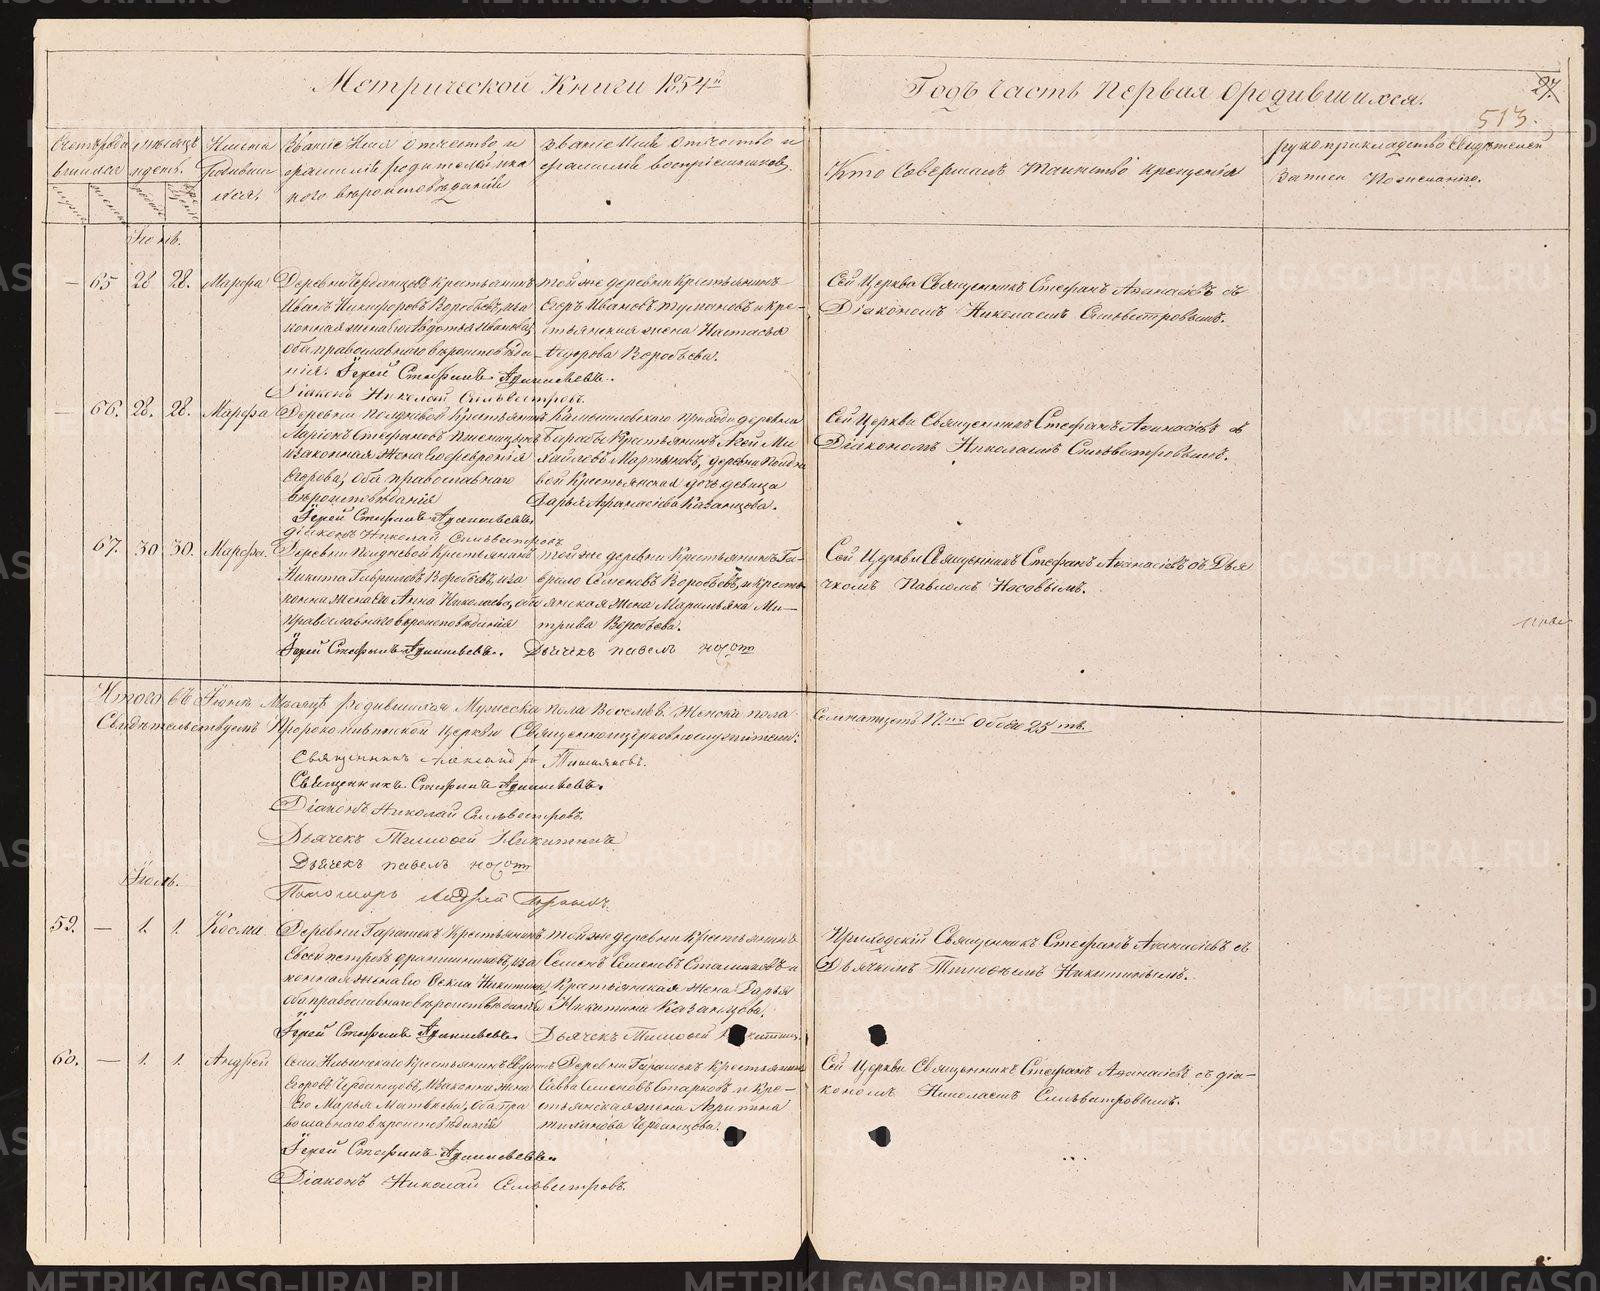 Метрической Книги 1854й
Годъ Часть Первая О родившихся.
27.
513.
Счетъ родившихся
Мѣсяцъ и день.
Имена родившихся.
Званіе Имя отчество и фамиліе родителей и какого вѣроисповѣданія
Званіе Имя отчество и фамиліе воспріемниковъ.
Кто Совершалъ таинство крещенія
рукоприкладство Свидѣтелей записи По желанію.
Іюнь.
— 65 28 28. Марфа
Деревни Черданцовъ крестьянинъ
Иванъ Никифоровъ Воробьевъ, и за
конная жена его Авдотья Иванова,
оба православнаго вѣроисповѣда
нія. Іерей Стефанъ Аѳанасьевъ.
Діаконъ Николай Сильвестровъ.
той же деревни Крестьянинъ
Егоръ Ивановъ Тумановъ и кре—
стьянская жена Настасья
Ѳедорова Воробьева.
Сей Церкви Священникъ Стефанъ Аѳанасіевъ съ
Діакономъ Николаемъ Сильвестровымъ.
— 66. 28. 28. Марфа
Деревни Полдневой Крестьянинъ
Маріонъ Стефановъ Пшеницынъ
и законная Жена его Февронія
Егорова, оба православнаго
вѣроисповѣданія
Іерей Стефанъ Аѳанасьевъ,
діаконъ Николай Сильвестровъ
Камышловскаго прихода деревни
хайловъ Мартыновъ, деревни Полдне
вой Крестьянская дочь девица
Дарья Афанасьева Казанцова.
Сей Церкви Священникъ Стефанъ Аѳанасіевъ съ
Діакономъ Николаемъ Сильвестровымъ.
67. 30 30. Марфа.
Деревни Полдневой Крестьянинъ
Никита Гавриловъ Воробьевъ, и за
конна жена его Анна Николаева, оба
православнаго вѣроисповѣданія
Іерей Стефанъ Аѳанасьевъ. Дьячекъ павелъ
той же деревни Крестьянинъ Га—
врило Семеновъ Воробьевъ, и кресть
янская жена Маремьяна Ми—
трива Воробьева.
Сей Церкви Священникъ Стефанъ Аѳанасіевъ съ Дья
чкомъ Павломъ Носовымъ.
Итого въ Іюнѣ Мѣсяцѣ родившихся Мужеска пола Восемь 8. Женска пола Семнатцеть 17. Обоего 25ть.
Свидѣтельствуемъ Пророкоильинской Церкви Священноцерковнослужители:
Священникъ Александръ
Священникъ Стефанъ Аѳанасьевъ.
Діаконъ Николай Сильвестровъ.
Дьячекъ Тимофей Никитинъ
Дьячекъ павелъ
Пономарь Андрей
Іюль.
59. — 1. 1. Косма
Деревни Гарашекъ Крестьянинъ
Евсей петровъ драпишниковъ, и за
конная жена его Ѳекла Никитина,
оба православнаго вѣроисповѣданія
Іерей Стефанъ Аѳанасьевъ. Дьячекъ Тимофей Никитинъ
той же деревни Крестьянинъ
Семенъ Семеновъ Стамиковъ и
Крестьянская жена Дарья
Никитина Казанцова.
Приходскій Священникъ Стефанъ Аѳанасіевъ съ
Дьячкомъ Тимофѣемъ Никитинымъ.
60. — 1. 1. Андрей
Села Ильинскаго Крестьянинъ
Егоровъ Черданцовъ, и законна жена
Его Марья Матвѣева, оба пра
вославнаго вѣроисповѣданія
Іерей Стефанъ Аѳанасьевъ.
Діаконъ Николай Сильвестровъ.
Деревни Гарашекъ Крестьянинъ
Савва Семеновъ Старковъ и Кре—
стьянская жена Агрипина
Черданцова.
Сей Церкви Священникъ Стефанъ Аѳанасіевъ съ діа—
кономъ Николаемъ Сильвестровымъ.
METRIKI.GASO-URAL.RU